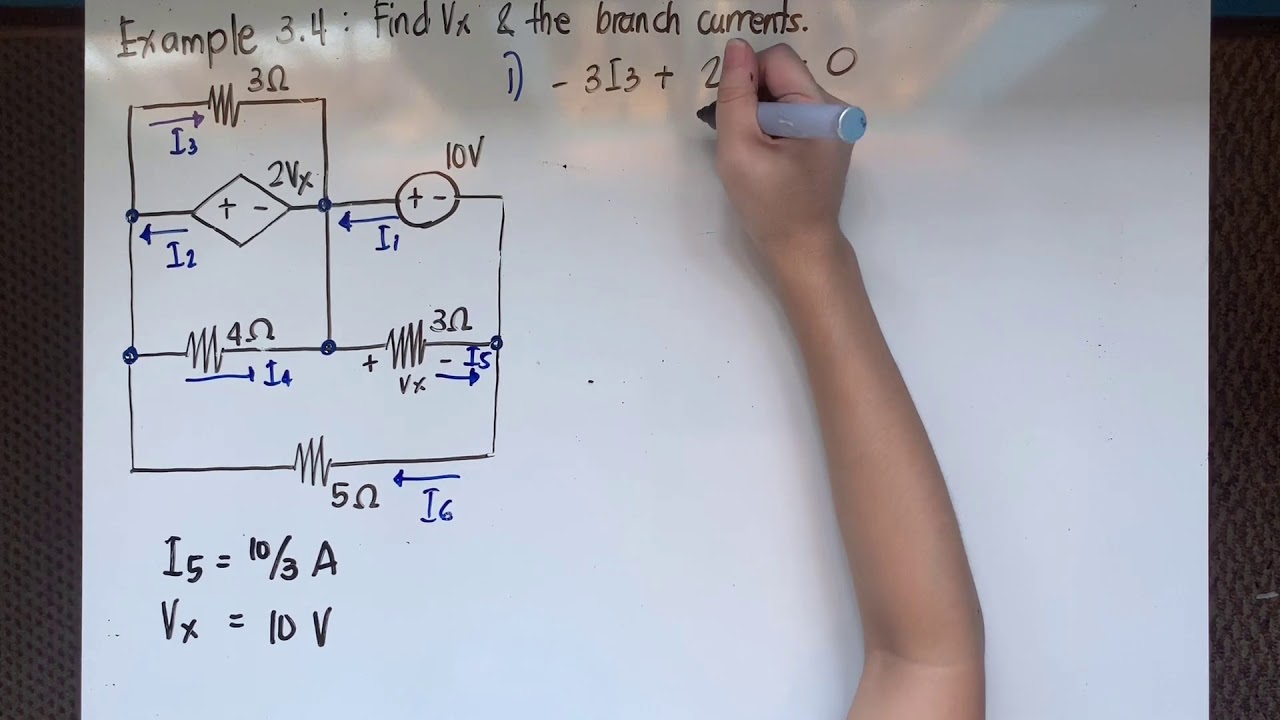 Example 3.4 : Find Vx & the branch currents.
i) - 3I3 + 2 0
3Ω
I3
10V
2Vx
+ -
+ -
I2
I1
4Ω
3Ω
I4
+ - I5
Vx
5Ω
I6
I5 = 10/3 A
Vx = 10 V